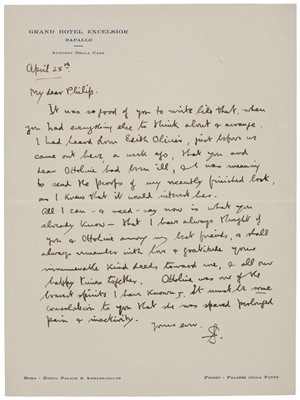 GRAND HOTEL EXCELSIOR
RAPALLO
AUGUSTO DELLA CASA
April 25th
My dear Philip.
It was so good of you to write like that, when
you had everything else to think about & arrange.
I had heard from Edith Olivier, just before we
came out here, a week ago, that you and
dear Ottoline had been ill, & I was meaning
to send the proofs of my recently finished book,
as I knew that it would interest her.
All I can - & need - say now is what you
already know - that I have always thought of
you & Ottoline among my best friends, & shall
always remember with love & gratitude your
innumerable kind deeds toward me, & all our
happy times together. Ottoline was one of the
bravest spirits I have known. It must be some
consolation to you that she was spared prolonged
pain & inactivity.
Yours ever.
SS
ROMA - HOTEL PALACE & AMBASSADEURS
FIUGGI - PALAZZO DELLA FONTE